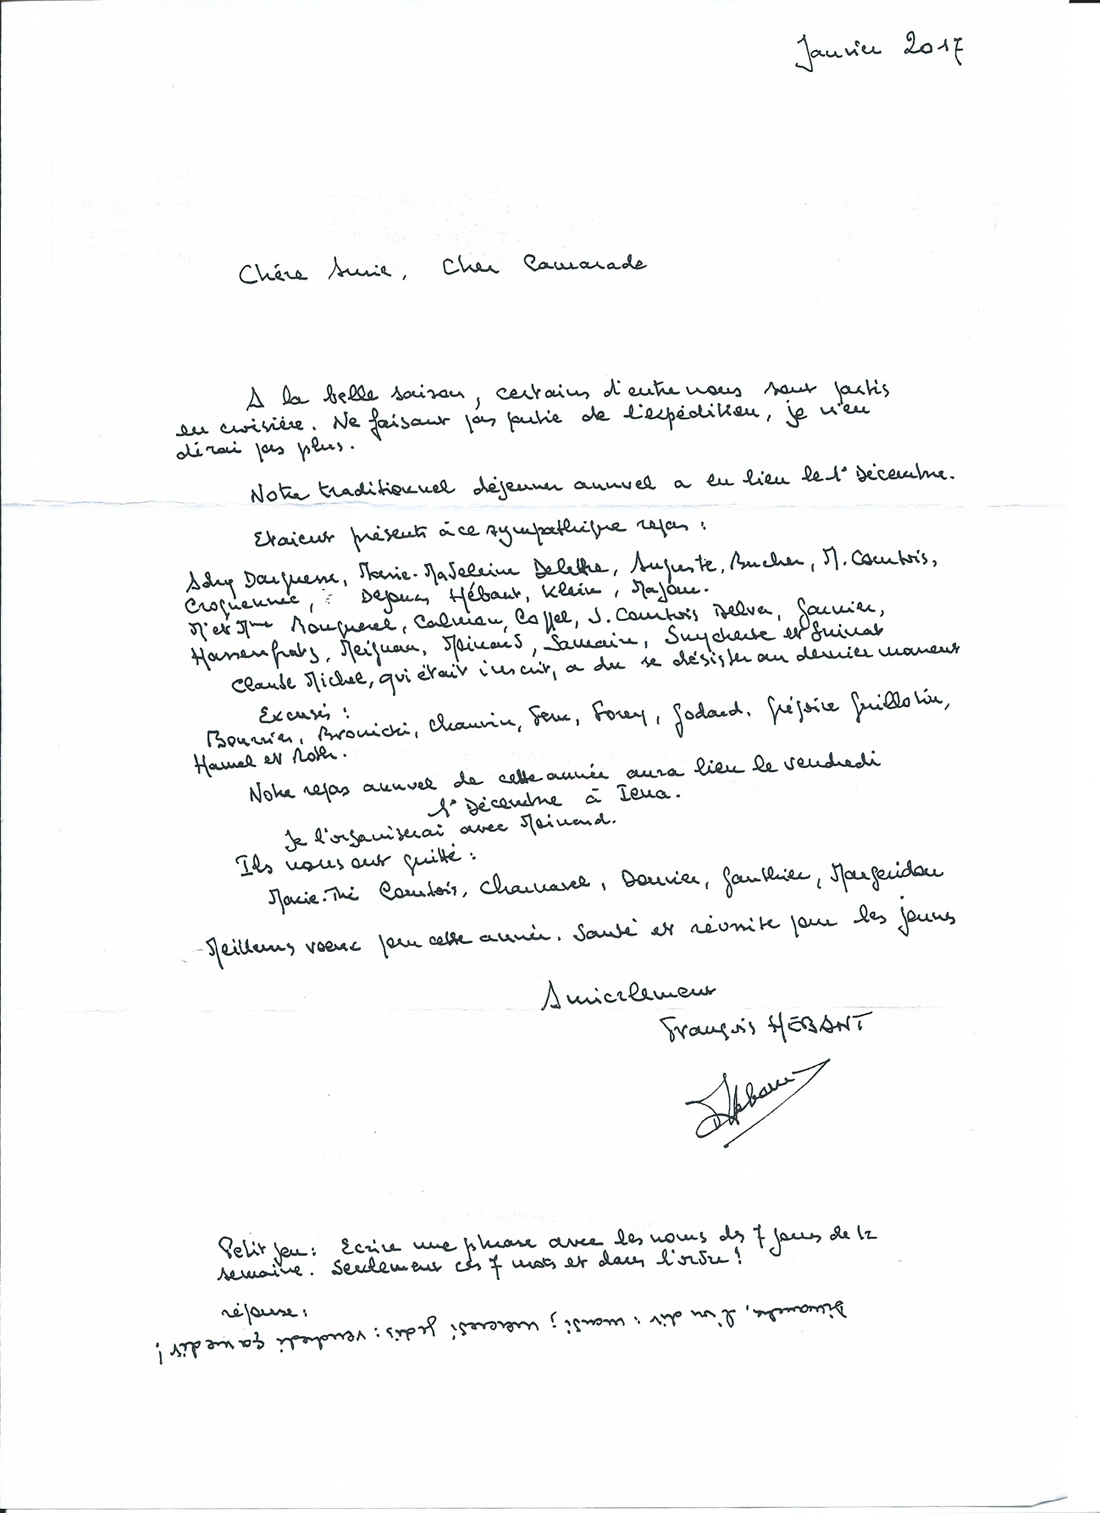 Janvier 2017
Chère Amie, Cher Camarade
A la belle saison, certains d'entre nous sont partis
en croisière. Ne faisant pas partie de l'expédition, je n'en
dirai pas plus.
Notre traditionnel déjeuner annuel a eu lieu le 1er Décembre.
Etaient présents à ce sympathique repas :
Marie-Madeleine Delettre, Auguste, Bucher, M. Comtois,
Croguennec, Depuis Hébant, Klein, Majou.
Mr et Mme Rouquerel, Calmeau, Coffel, J. Comtois Delver, Garnier,
Hassenfratz, Meignan, Meinard, Samain, Snyckerte et Guinat
Claude Michel, qui était inscrit, a du se désister au dernier moment
Excusés :
Bourrier, Bronicki, Chauvin, Forey, Godard. Grégoire Guillotin,
Hamel et Roth.
Notre repas annuel de cette année aura lieu le vendredi
1er Décembre à Iena.
Je l'organiserai avec Meinard.
Ils nous ont quitté :
Marie-Thé Comtois, Chamarel, Douvier, Gauthier, Margeridou
Meilleurs voeux pour cette année. Santé et réussite pour les jeunes
Amicalement
François HÉBANT
Petit jeu : Ecrire une phrase avec les noms des 7 jours de la
semaine. Seulement ces 7 mots et dans l'ordre !
réponse :
Dimanche, l'on dit : mardi ; mercredi jedis : vendredi ça me dit !